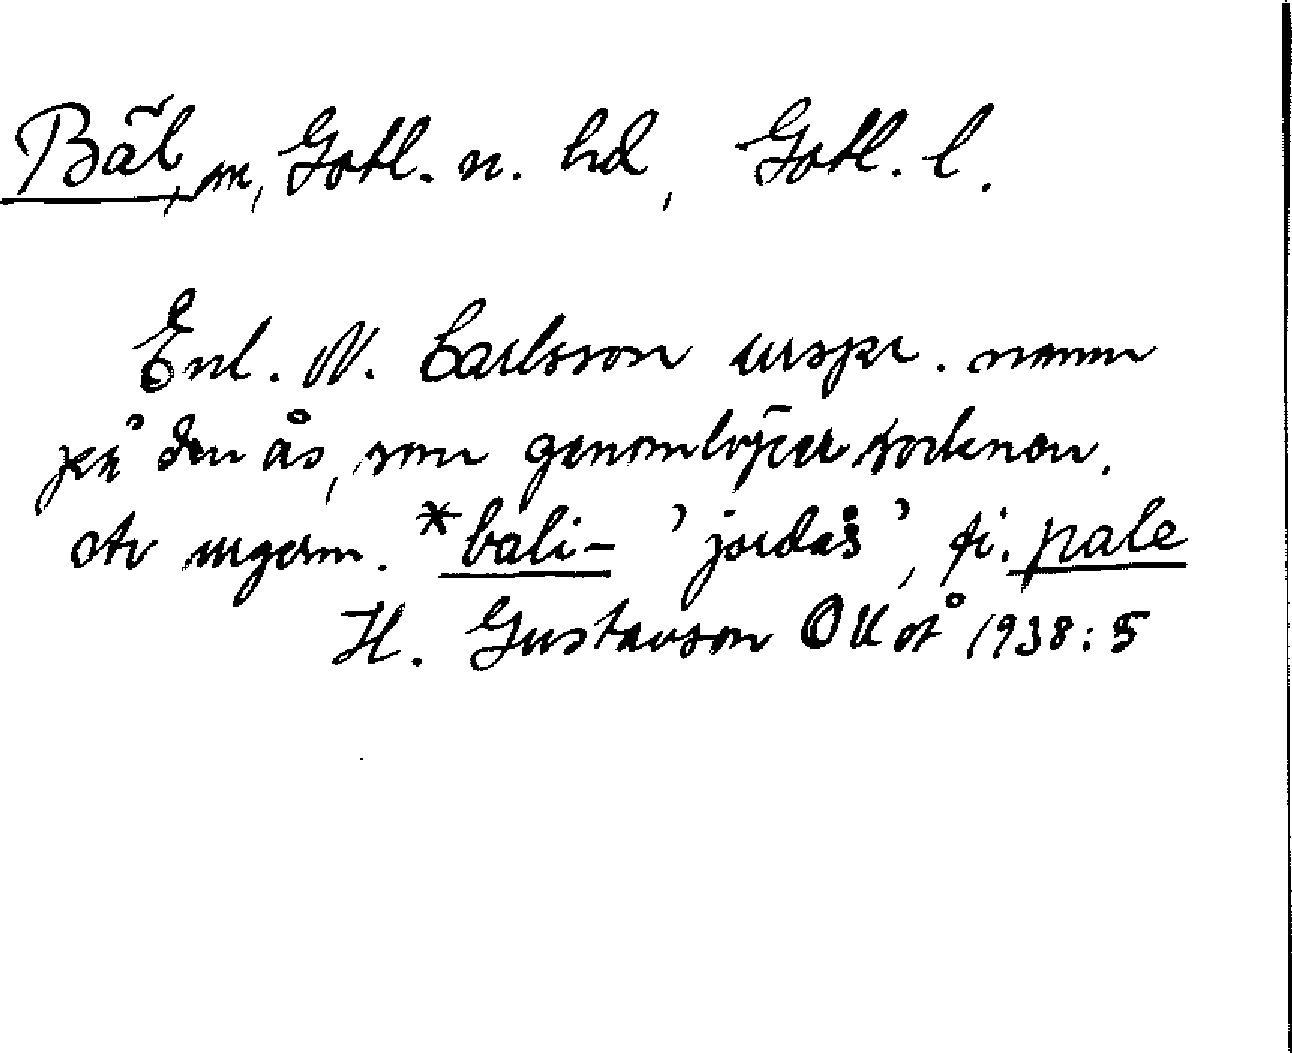 Bäl, sn, Gotl. n. hd, Gotl. l.
Enl. N. Carlsson urspr. namn
på den ås, som genomlöper socknen.
Av urgerm. *bali- 'jordås', fi. pale
H. Gustavson OUoÅ 1938:5